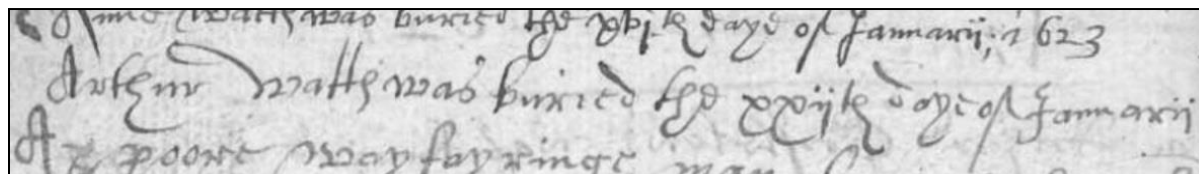 Anne Watth was buried the xvjth daye of Januarii, 1623
Arthur Watth was buried the xxijth daye of Januarii
A poore wayfayringe man